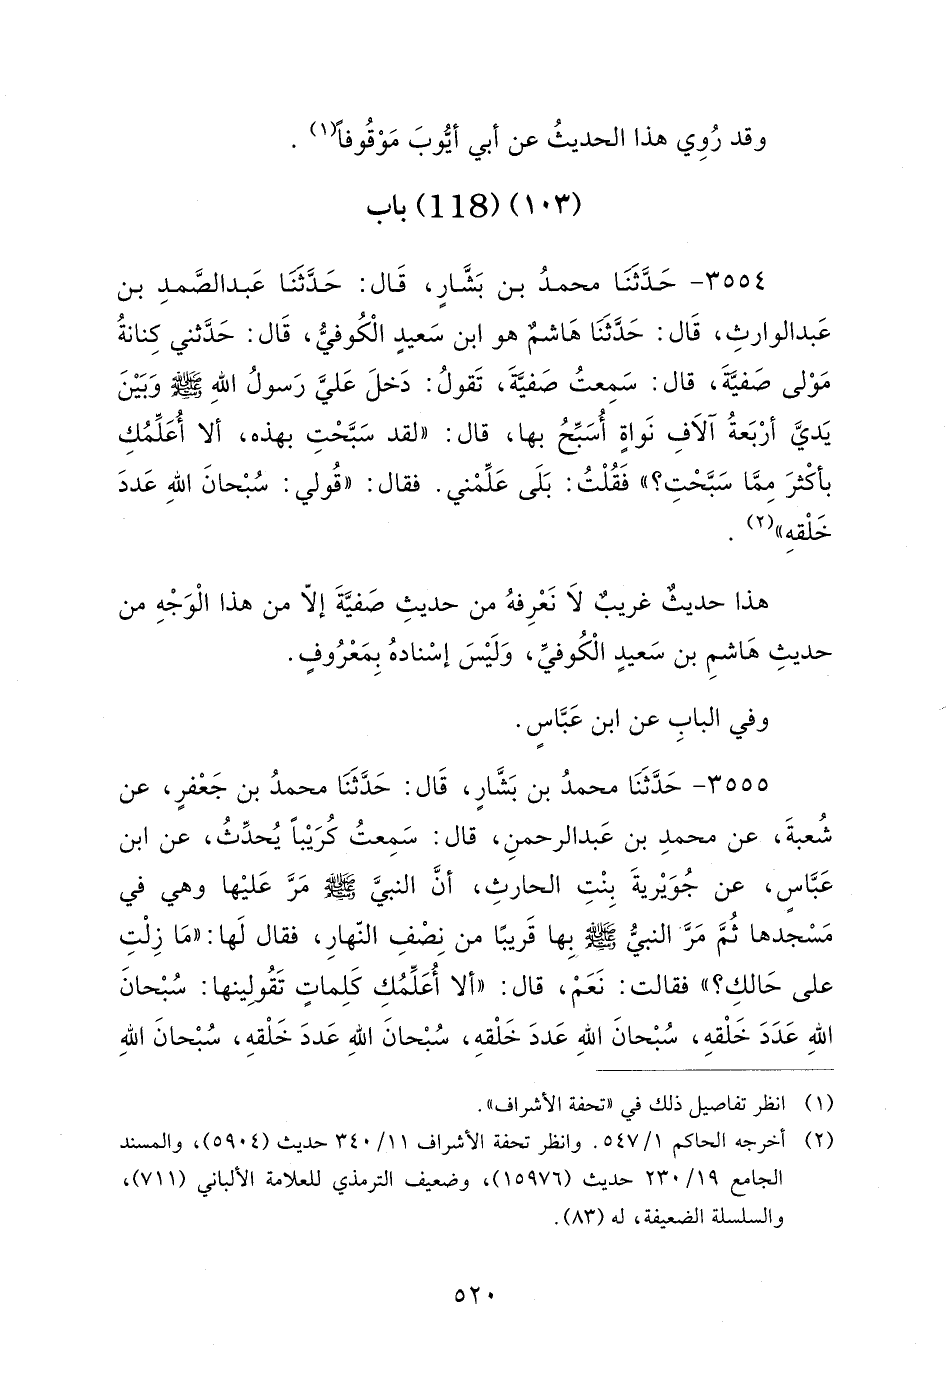 وقد رُوِي هذا الحديثُ عن أبي أيُّوبَ مَوْقُوفاً(١) .
(١٠٣) (118) باب
٣٥٥٤- حَدَّثَنَا محمدُ بن بَشَّارٍ، قَال: حَدَّثَنَا عَبدالصَّمدِ بن
عَبدالوارثِ، قَال: حَدَّثَنَا هَاشمٌ هو ابن سَعيدٍ الْكُوفيُّ، قَال: حَدَّثني كِنانةُ
مَوْلى صَفيَّةَ، قال: سَمِعتُ صَفيَّةَ، تَقولُ: دَخلَ عَليَّ رَسولُ اللهِ ﷺ وَبَيْنَ
يَديَّ أرْبَعةُ آلَافِ نَواةٍ أُسَبِّحُ بها، قال: «لقد سَبَّحْتِ بهذه، ألا أُعَلِّمُكِ
بأكْثرَ مِمَّا سَبَّحْتِ؟» فَقُلْتُ: بَلَى عَلِّمْني. فقال: «قُولي: سُبْحانَ اللهِ عَددَ
خَلْقهِ»(٢) .
هذا حديثٌ غريبٌ لَا نَعْرِفهُ من حديثِ صَفيَّةَ إلاّ من هذا الْوَجْهِ من
حديثِ هَاشمِ بن سَعيدٍ الْكُوفيِّ، وَلَيْسَ إسْنادهُ بِمَعْرُوفٍ.
وفي البابِ عن ابن عَبَّاسٍ.
٣٥٥٥- حَدَّثَنَا محمدُ بن بَشَّارٍ، قَال: حَدَّثَنَا محمدُ بن جَعْفرٍ، عن
شُعبةَ، عن محمدِ بن عَبدالرحمنِ، قال: سَمِعتُ كُرَيْباً يُحدِّثُ، عن ابن
عَبَّاسٍ، عن جُوَيْريةَ بِنْتِ الحارثِ، أنَّ النبيَّ ﷺ مَرَّ عَليْها وهي في
مَسْجدها ثُمَّ مَرَّ النبيُّ ﷺ بِها قَريبًا من نِصْفِ النّهارِ، فقال لَها: «مَا زِلْتِ
على حَالكِ؟» فقالت: نَعَمْ، قال: «ألا أُعَلِّمُكِ كَلِماتٍ تَقُولِينها: سُبْحانَ
اللهِ عَدَدَ خَلْقهِ، سُبْحانَ اللهِ عَددَ خَلْقهِ، سُبْحانَ اللهِ عَددَ خَلْقهِ، سُبْحانَ اللهِ
(١) انظر تفاصيل ذلك في «تحفة الأشراف».
(٢) أخرجه الحاكم ١/٥٤٧. وانظر تحفة الأشراف ١١/٣٤٠ حديث (٥٩٠٤)، والمسند
الجامع ١٩/٢٣٠ حديث (١٥٩٧٦)، وضعيف الترمذي للعلامة الألباني (٧١١)،
والسلسلة الضعيفة، له (٨٣).
٥٢٠